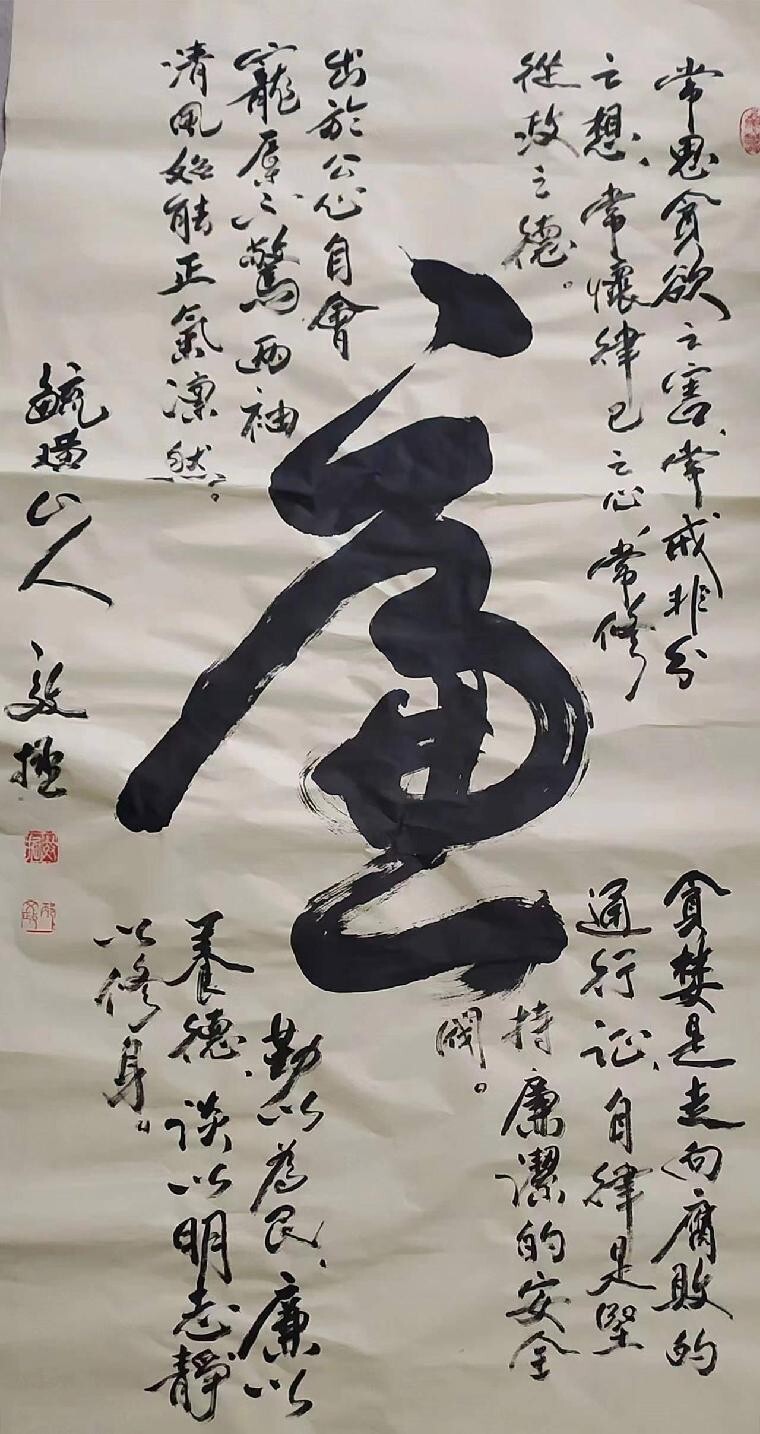 常思貪欲之害、常戒非分
之想、常懷律己之心、常修
從政之德。
出於公心自會
寵辱不驚兩袖
清風始能正氣凛然。
廉
貪婪是走向腐敗的
通行证、自律是堅
持廉潔的安全
阀。
勤以為民、廉以
養德、谈以明志靜
以修身。
毓璜山人